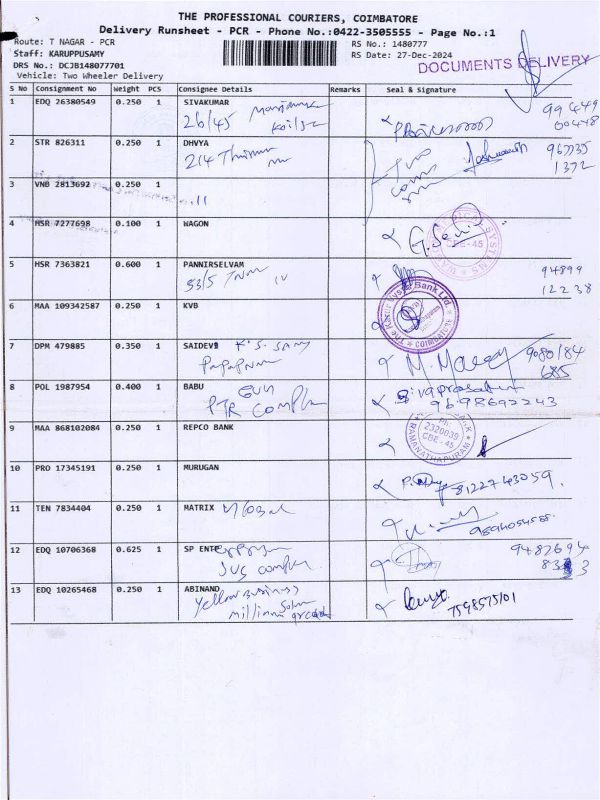 THE PROFESSIONAL COURIERS, COIMBATORE
Delivery Runsheet - PCR - Phone No.:0422-3505555 - Page No.:1
Route: T NAGAR - PCR
RS No.: 1480777
Staff: KARUPPUSAMY
RS Date: 27-Dec-2024
DRS No.: DCJB148077701
DOCUMENTS DELIVERY
Vehicle: Two Wheeler Delivery
S No Consignment No Weight PCS Consignee Details Remarks Seal & Signature
1 EDQ 26380549 0.250 1 SIVAKUMAR
26/45
99449
00448
2 STR 826311 0.250 1 DHVYA
214
1372
3 VNB 2813692 0.250 1
4 HSR 7277698 0.100 1 WAGON
SYSTEMS
CBE-45
5 HSR 7363821 0.600 1 PANNIRSELVAM
53/5
94899
12238
6 MAA 109342587 0.250 1 KVB
The Karur Vysya Bank Ltd.
COIMBATORE
7 DPM 479885 0.350 1 SAIDEVI K.S. Samy
9080184
685
8 POL 1987954 0.400 1 BABU
PTR Complex
Sivaprasath
9698692243
9 MAA 868102084 0.250 1 REPCO BANK
Ph:
2320039
CBE-45
RAMANATHAPURAM
10 PRO 17345191 0.250 1 MURUGAN
8122743059.
11 TEN 7834404 0.250 1 MATRIX
12 EDQ 10706368 0.625 1 SP ENTE
complex
13 EDQ 10265468 0.250 1 ABINAND
Yellow Business
7598575101